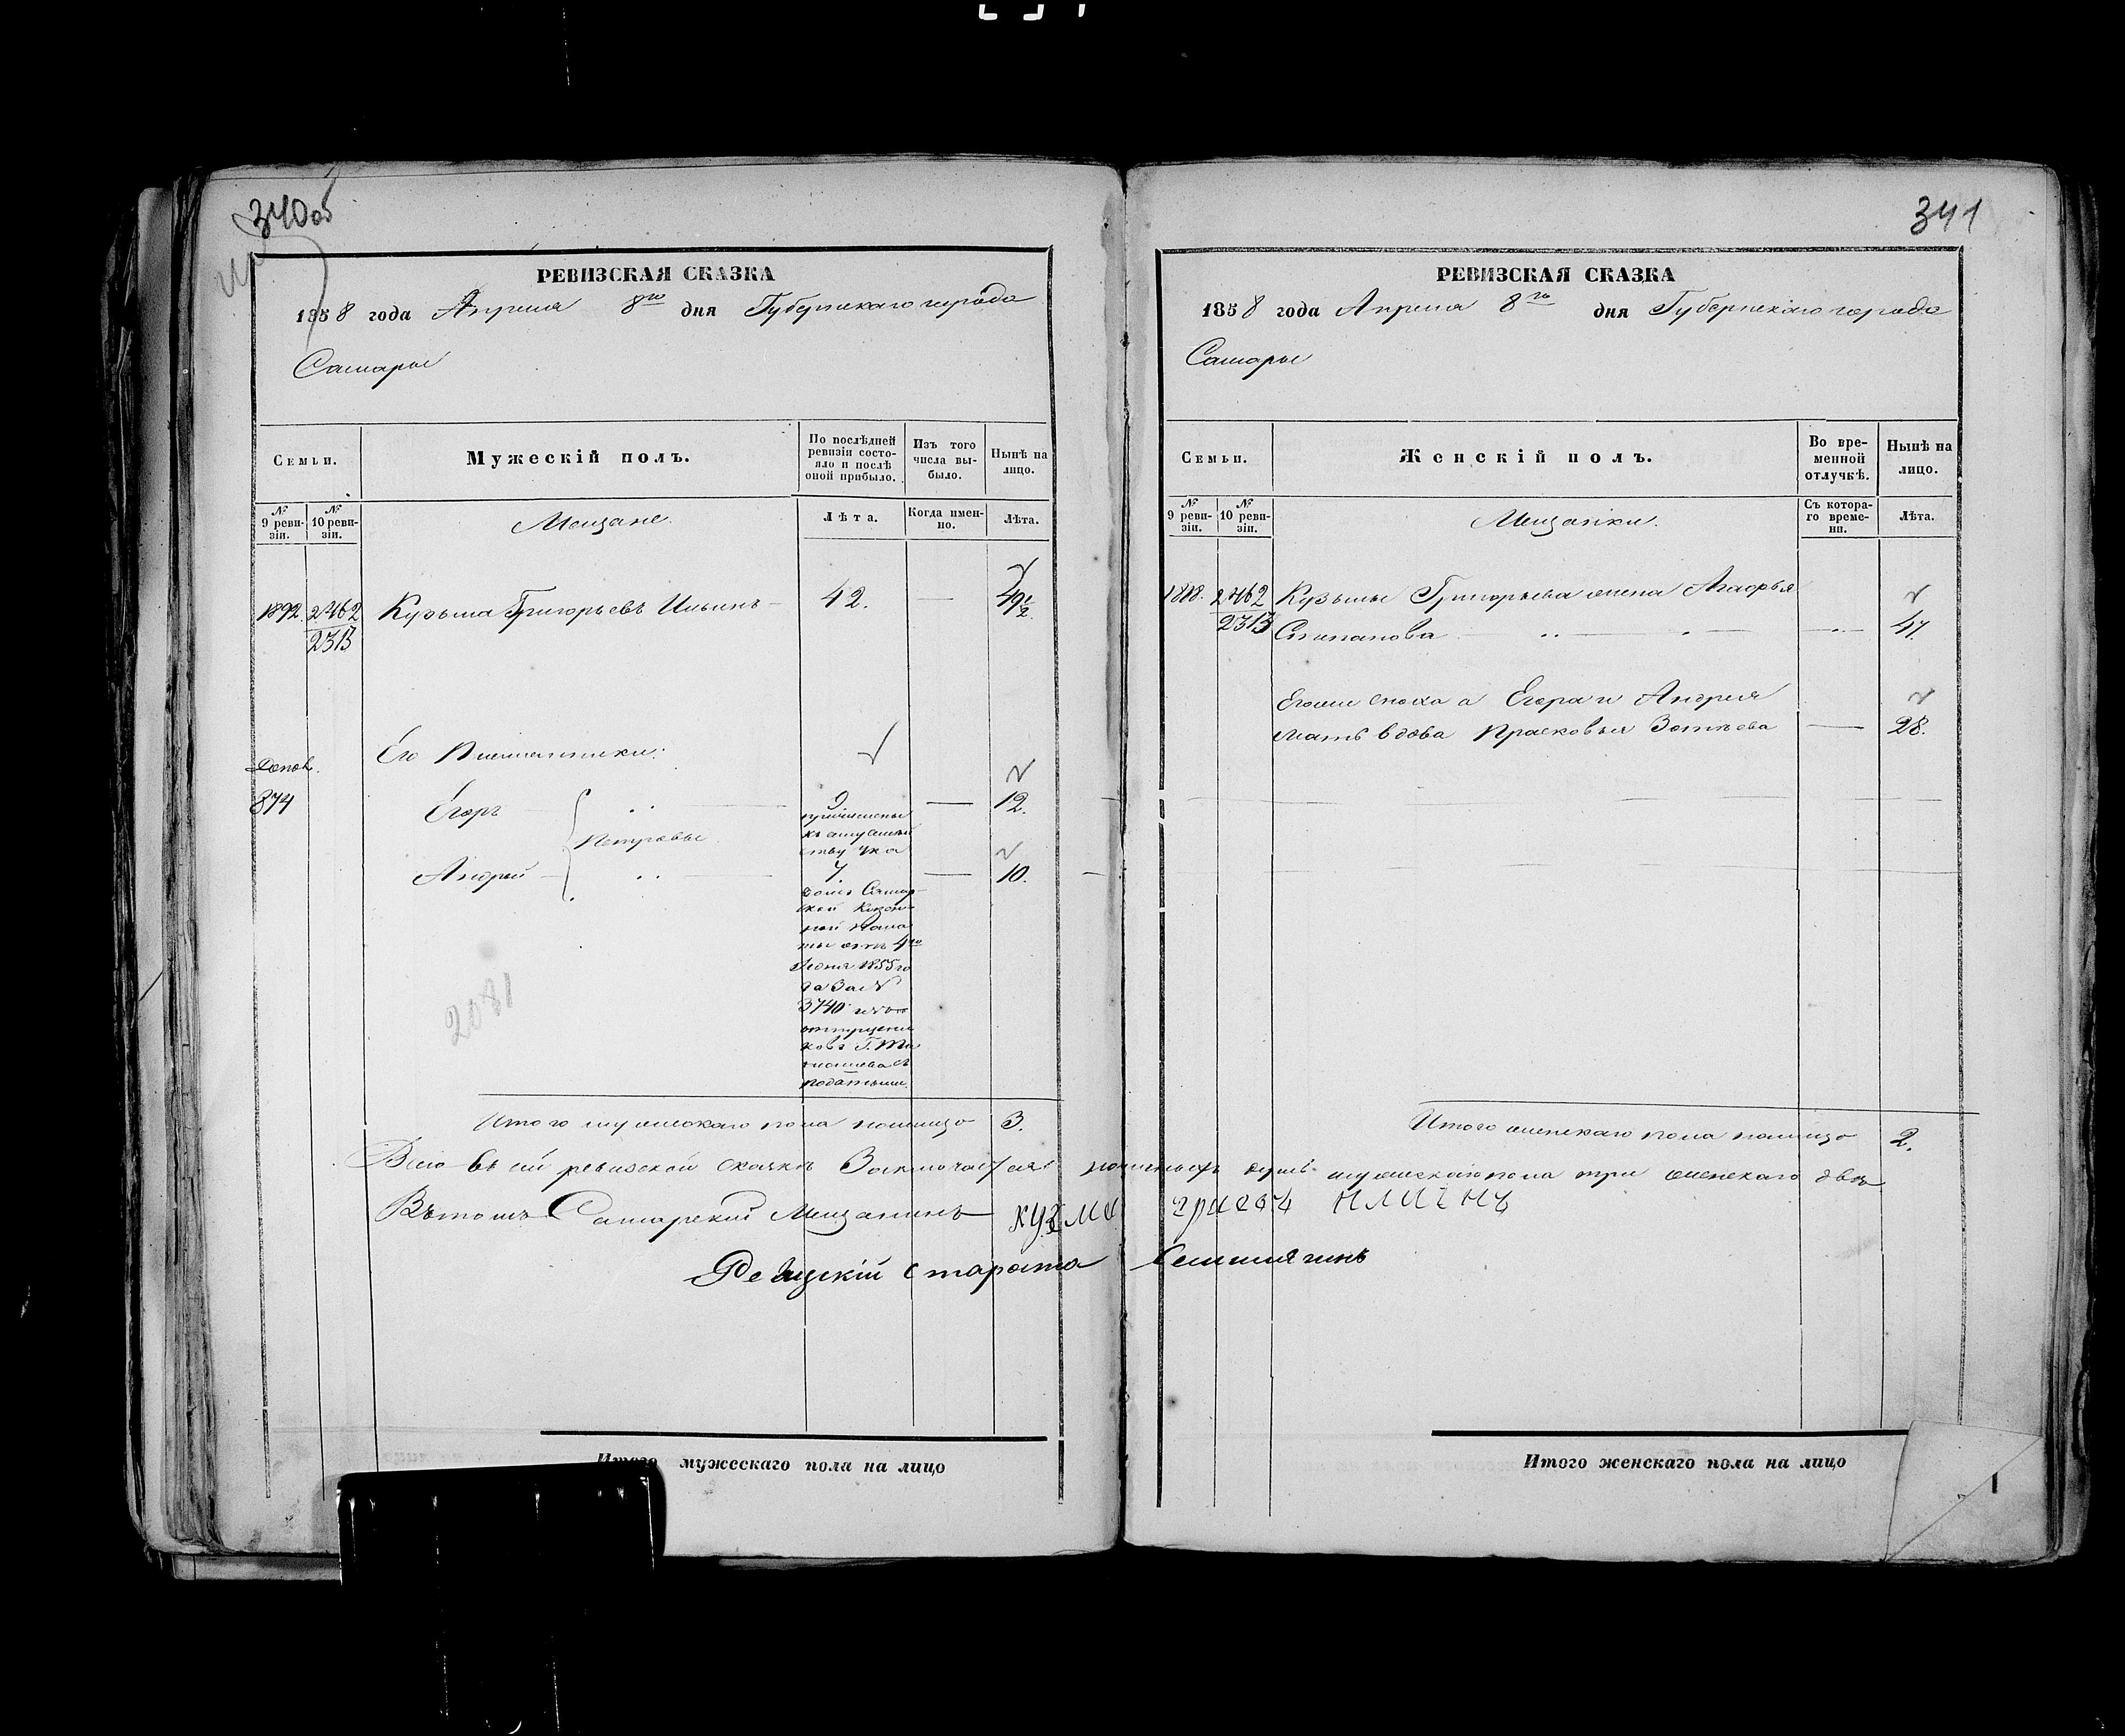 340об
РЕВИЗСКАЯ СКАЗКА
1858 года Апреля 8го дня Губернскаго города
Самары
Семьи.
Мужескій полъ.
По послѣдней ревизіи состояло и послѣ оной прибыло.
Изъ того числа выбыло.
Нынѣ на лицо.
№ 9 ревизіи.
№ 10 ревизіи.
Мещане
Лѣта.
Когда именно.
Лѣта.
1892. 2462 Кузьма Григорьевъ Ильинъ 42. — 49 1/2
2313
Его Племянники:
Допол.
874 Егоръ 9 — 12.
Петровы
причислены
къ
ству ука
Андрей 7. — 10.
зомъ Самар
ской Казен
ной Пала
ты отъ 4го
Июня 1855 го
да За №
3740 изъ во
отпущени
ковъ Г.
податьми.
2081
Итого мужескаго пола налицо 3.
Всего въ сей ревизской сказкѣ Заключается наличныхъ душъ мужескаго пола три женскаго двѣ
Въ томъ Самарскій Мещанинъ кузма ильинъ
Ревизскій староста
Итого мужескаго пола на лицо
341
РЕВИЗСКАЯ СКАЗКА
1858 года Апреля 8го дня Губернскаго города
Самары
Семьи.
Женскій полъ.
Во временной отлучкѣ.
Нынѣ на лицо.
№ 9 ревизіи.
№ 10 ревизіи.
Мещанки.
Съ котораго времени.
Лѣта.
2462 Кузьмы Григорьева жена Агафья
2313 Степанова — 47.
сноха а Егора и Андрея
мать вдова Прасковья Зотѣева — 28.
Итого женскаго пола налицо 2.
Итого женскаго пола на лицо